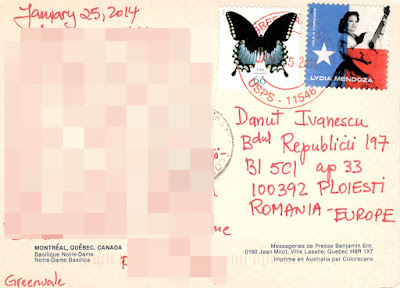 January 25, 2014
USA
66
USA FOREVER
LYDIA MENDOZA
USPS - 11548
Danut Ivanescu
Bdul Republicii 197
Bl 5C1 ap 33
100392 PLOIESTI
ROMANIA - EUROPE
MONTRÉAL, QUÉBEC, CANADA
Basilique Notre-Dame
Notre-Dame Basilica
Messageries de Presse Benjamin Enr.
0160 Jean-Milot, Ville Lasalle, Quebec H8R 1X7
Imprime en Australie par Colorscans
Greenvale